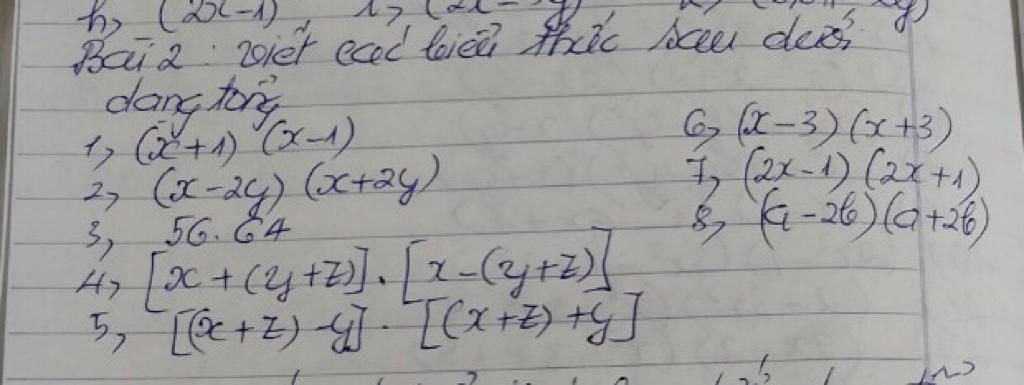 h, (2x-1)
Bài 2 : Viết các biểu thức sau dưới
dạng tổng
1, (x+1) (x-1)
2, (x-2y) (x+2y)
3, 56.64
4, [x+(y+z)].[x-(y+z)]
5, [(x+z)-y].[(x+z)+y]
6, (x-3)(x+3)
7, (2x-1)(2x+1)
8, (a-2b)(a+2b)